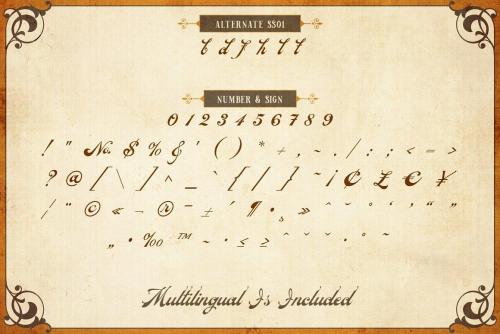 ALTERNATE SS01
b d f h l t
NUMBER & SIGN
0 1 2 3 4 5 6 7 8 9
! " № $ % & ' ( ) * + , - . / : ; < = >
? @ [ \ ] ^ _ ` { | } ~ ¡ ¢ £ € ¥
¦ ¨ © « ¬ ® ¯ ± ´ ¶ · ¸ »
„ • ‰ ™ ~ · ≤ ≥
Multilingual Is Included